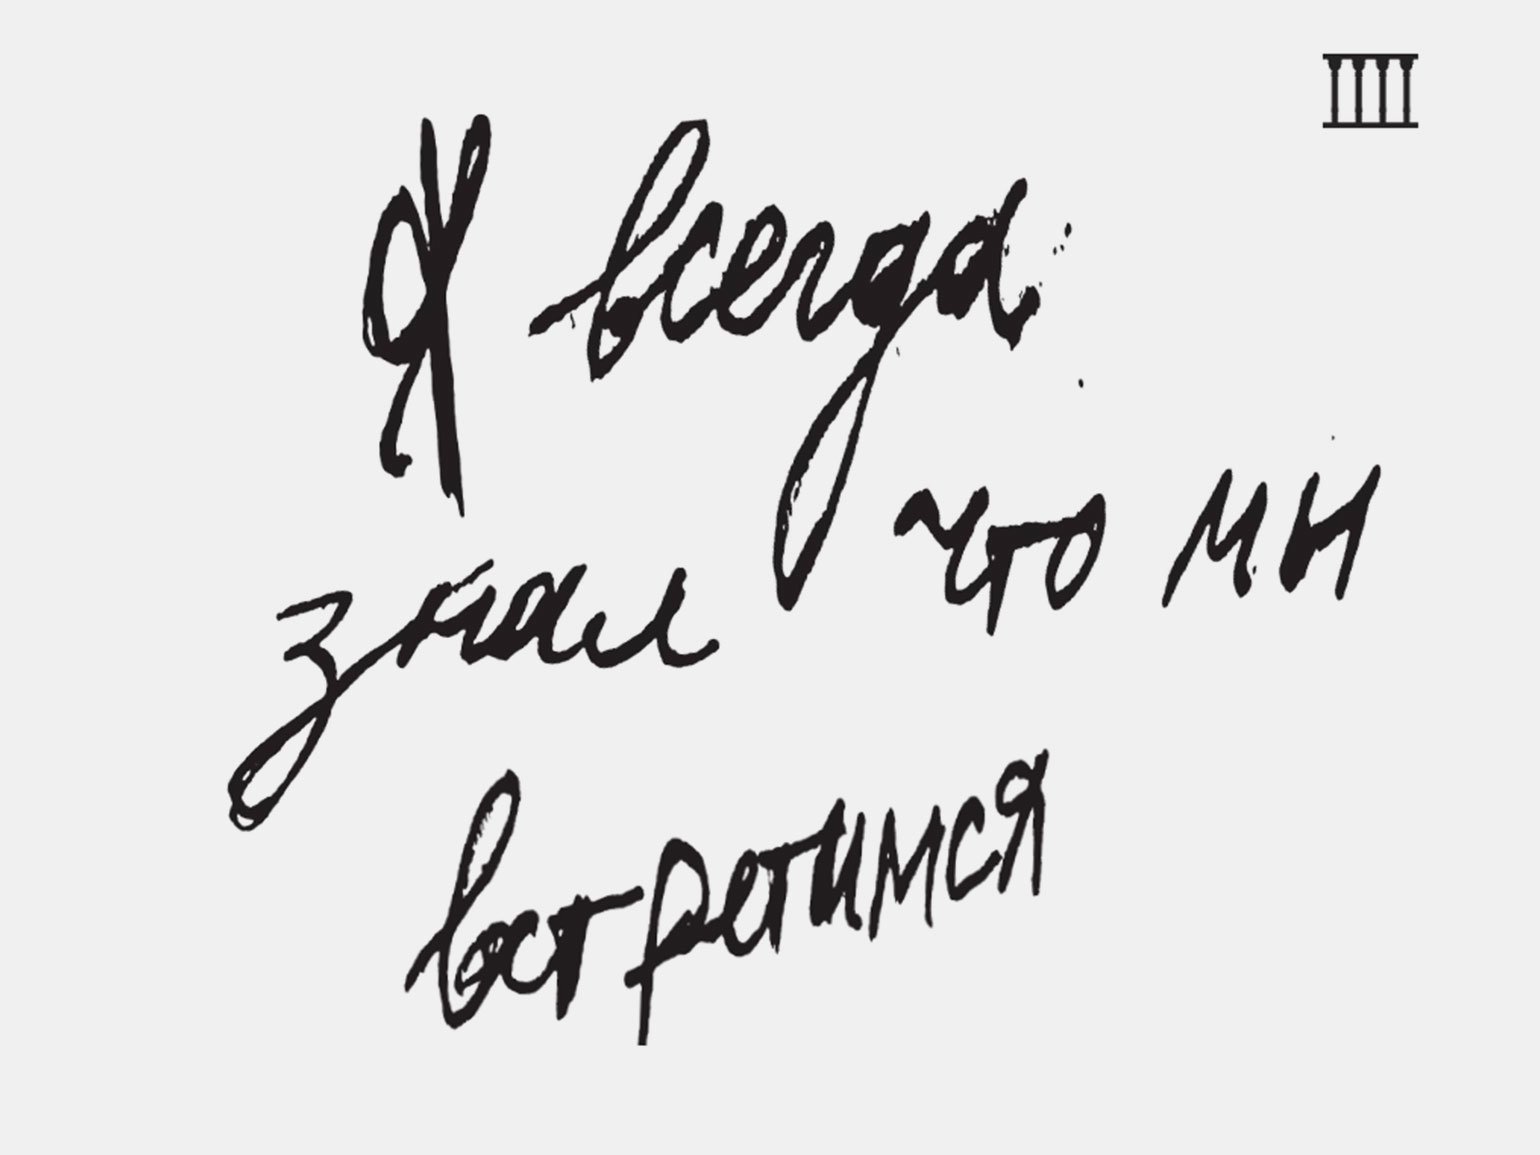 Я всегда
знал что мы
встретимся